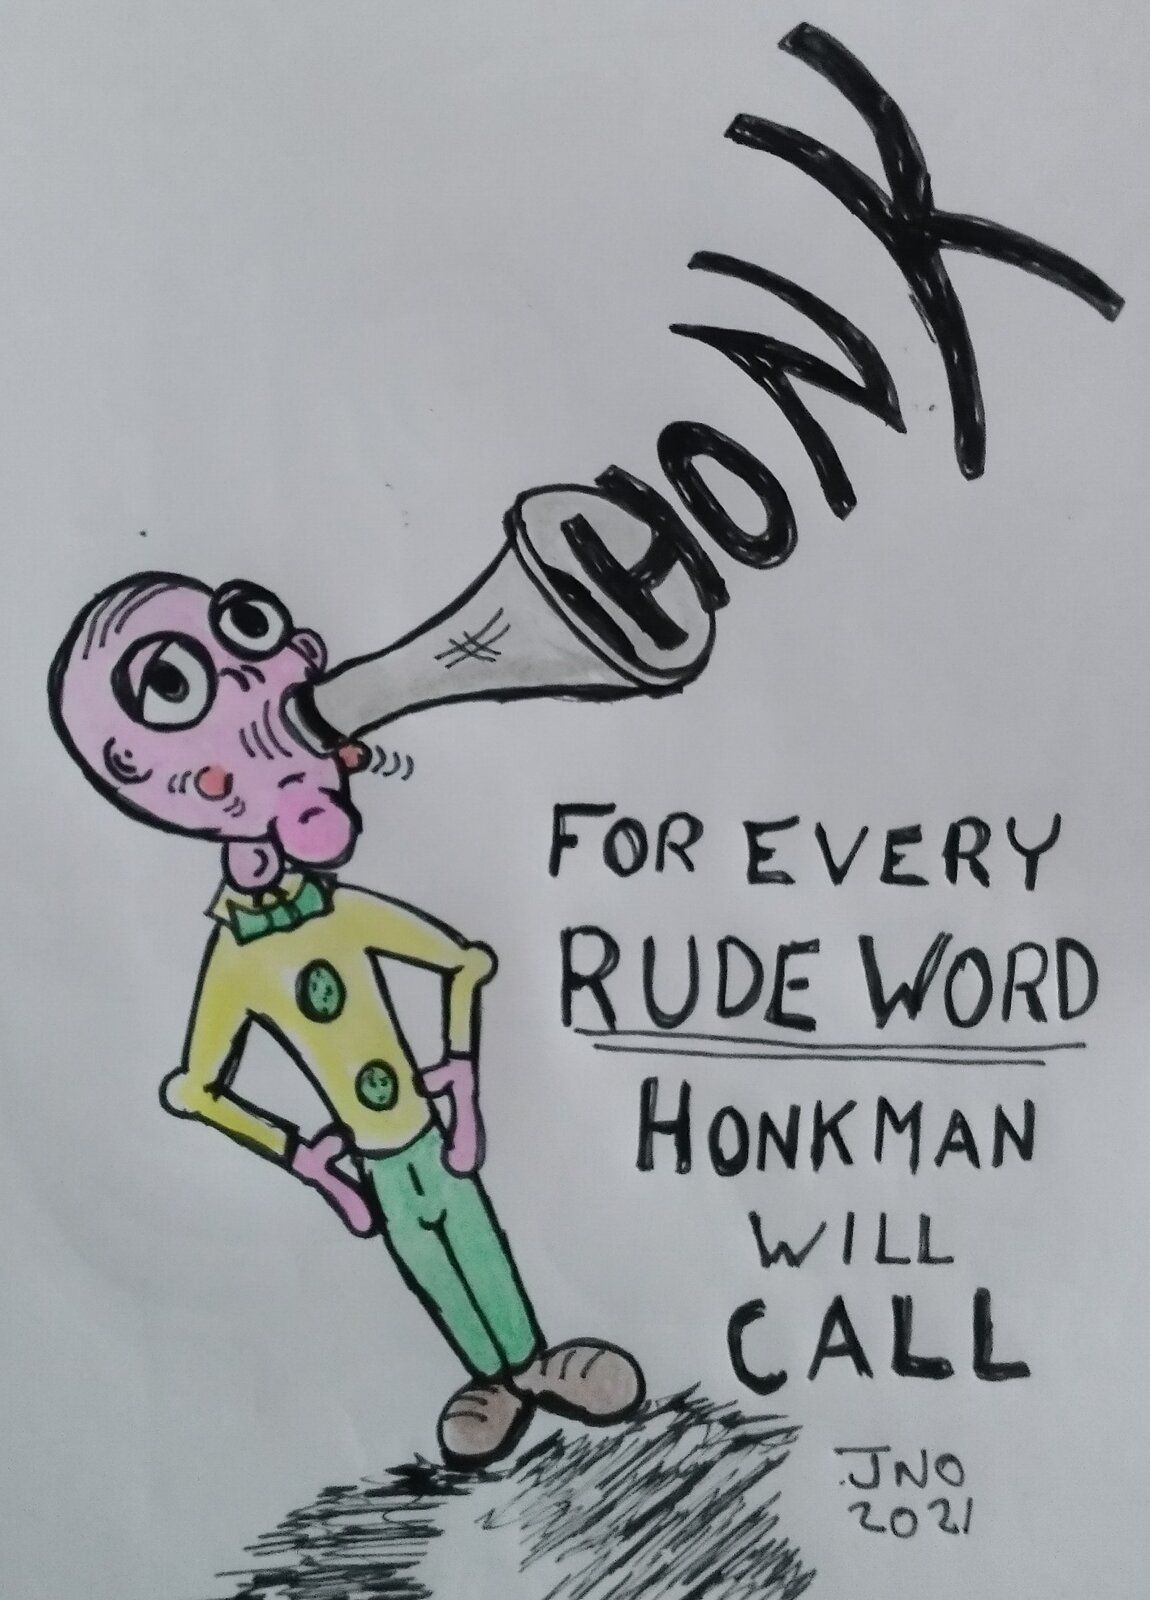 HONK
FOR EVERY
RUDE WORD
HONKMAN
WILL
CALL
JNO
2021